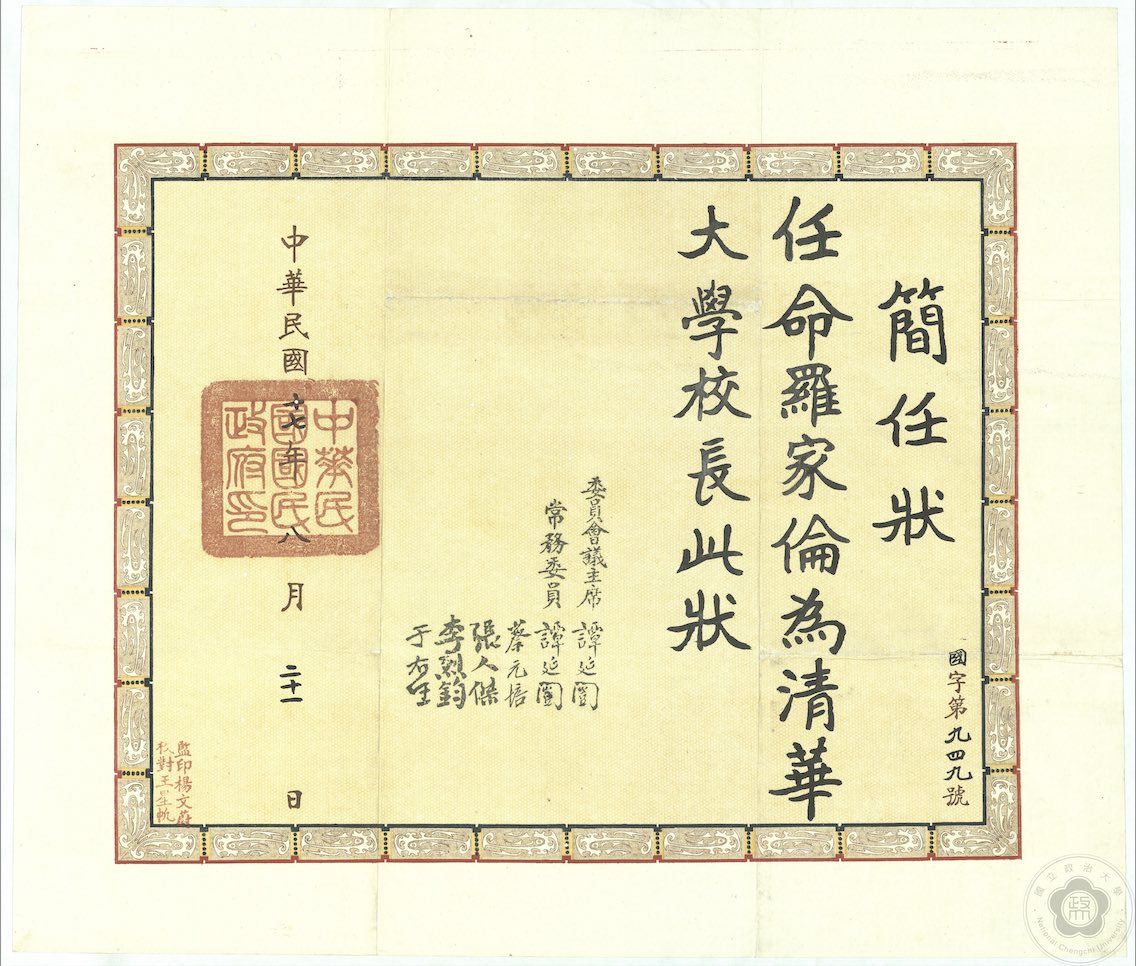 簡任狀
國字第九四九號
任命羅家倫為清華
大學校長此狀
委員會議主席 譚延闓
常務委員 譚延闓
蔡元培
張人傑
李烈鈞
于右任
中華民國十七年八月二十一日
中華民
國國民
政府印
監印楊文蔚
校對王星帆
國立政治大學
National Chengchi University
政大